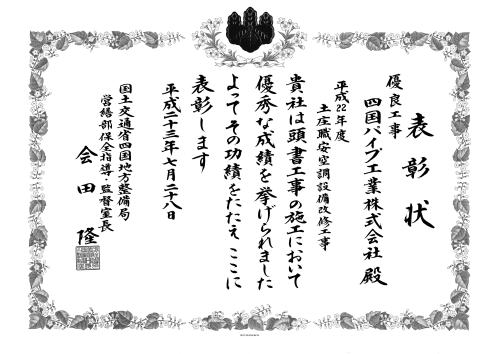 表彰状
優良工事
四国パイプ工業株式会社 殿
平成22年度
土庄職安空調設備改修工事
貴社は頭書工事の施工において
優秀な成績を挙げられました
よってその功績をたたえここに
表彰します
平成二十三年七月二十八日
国土交通省四国地方整備局
営繕部保全指導・監督室長
会田 隆